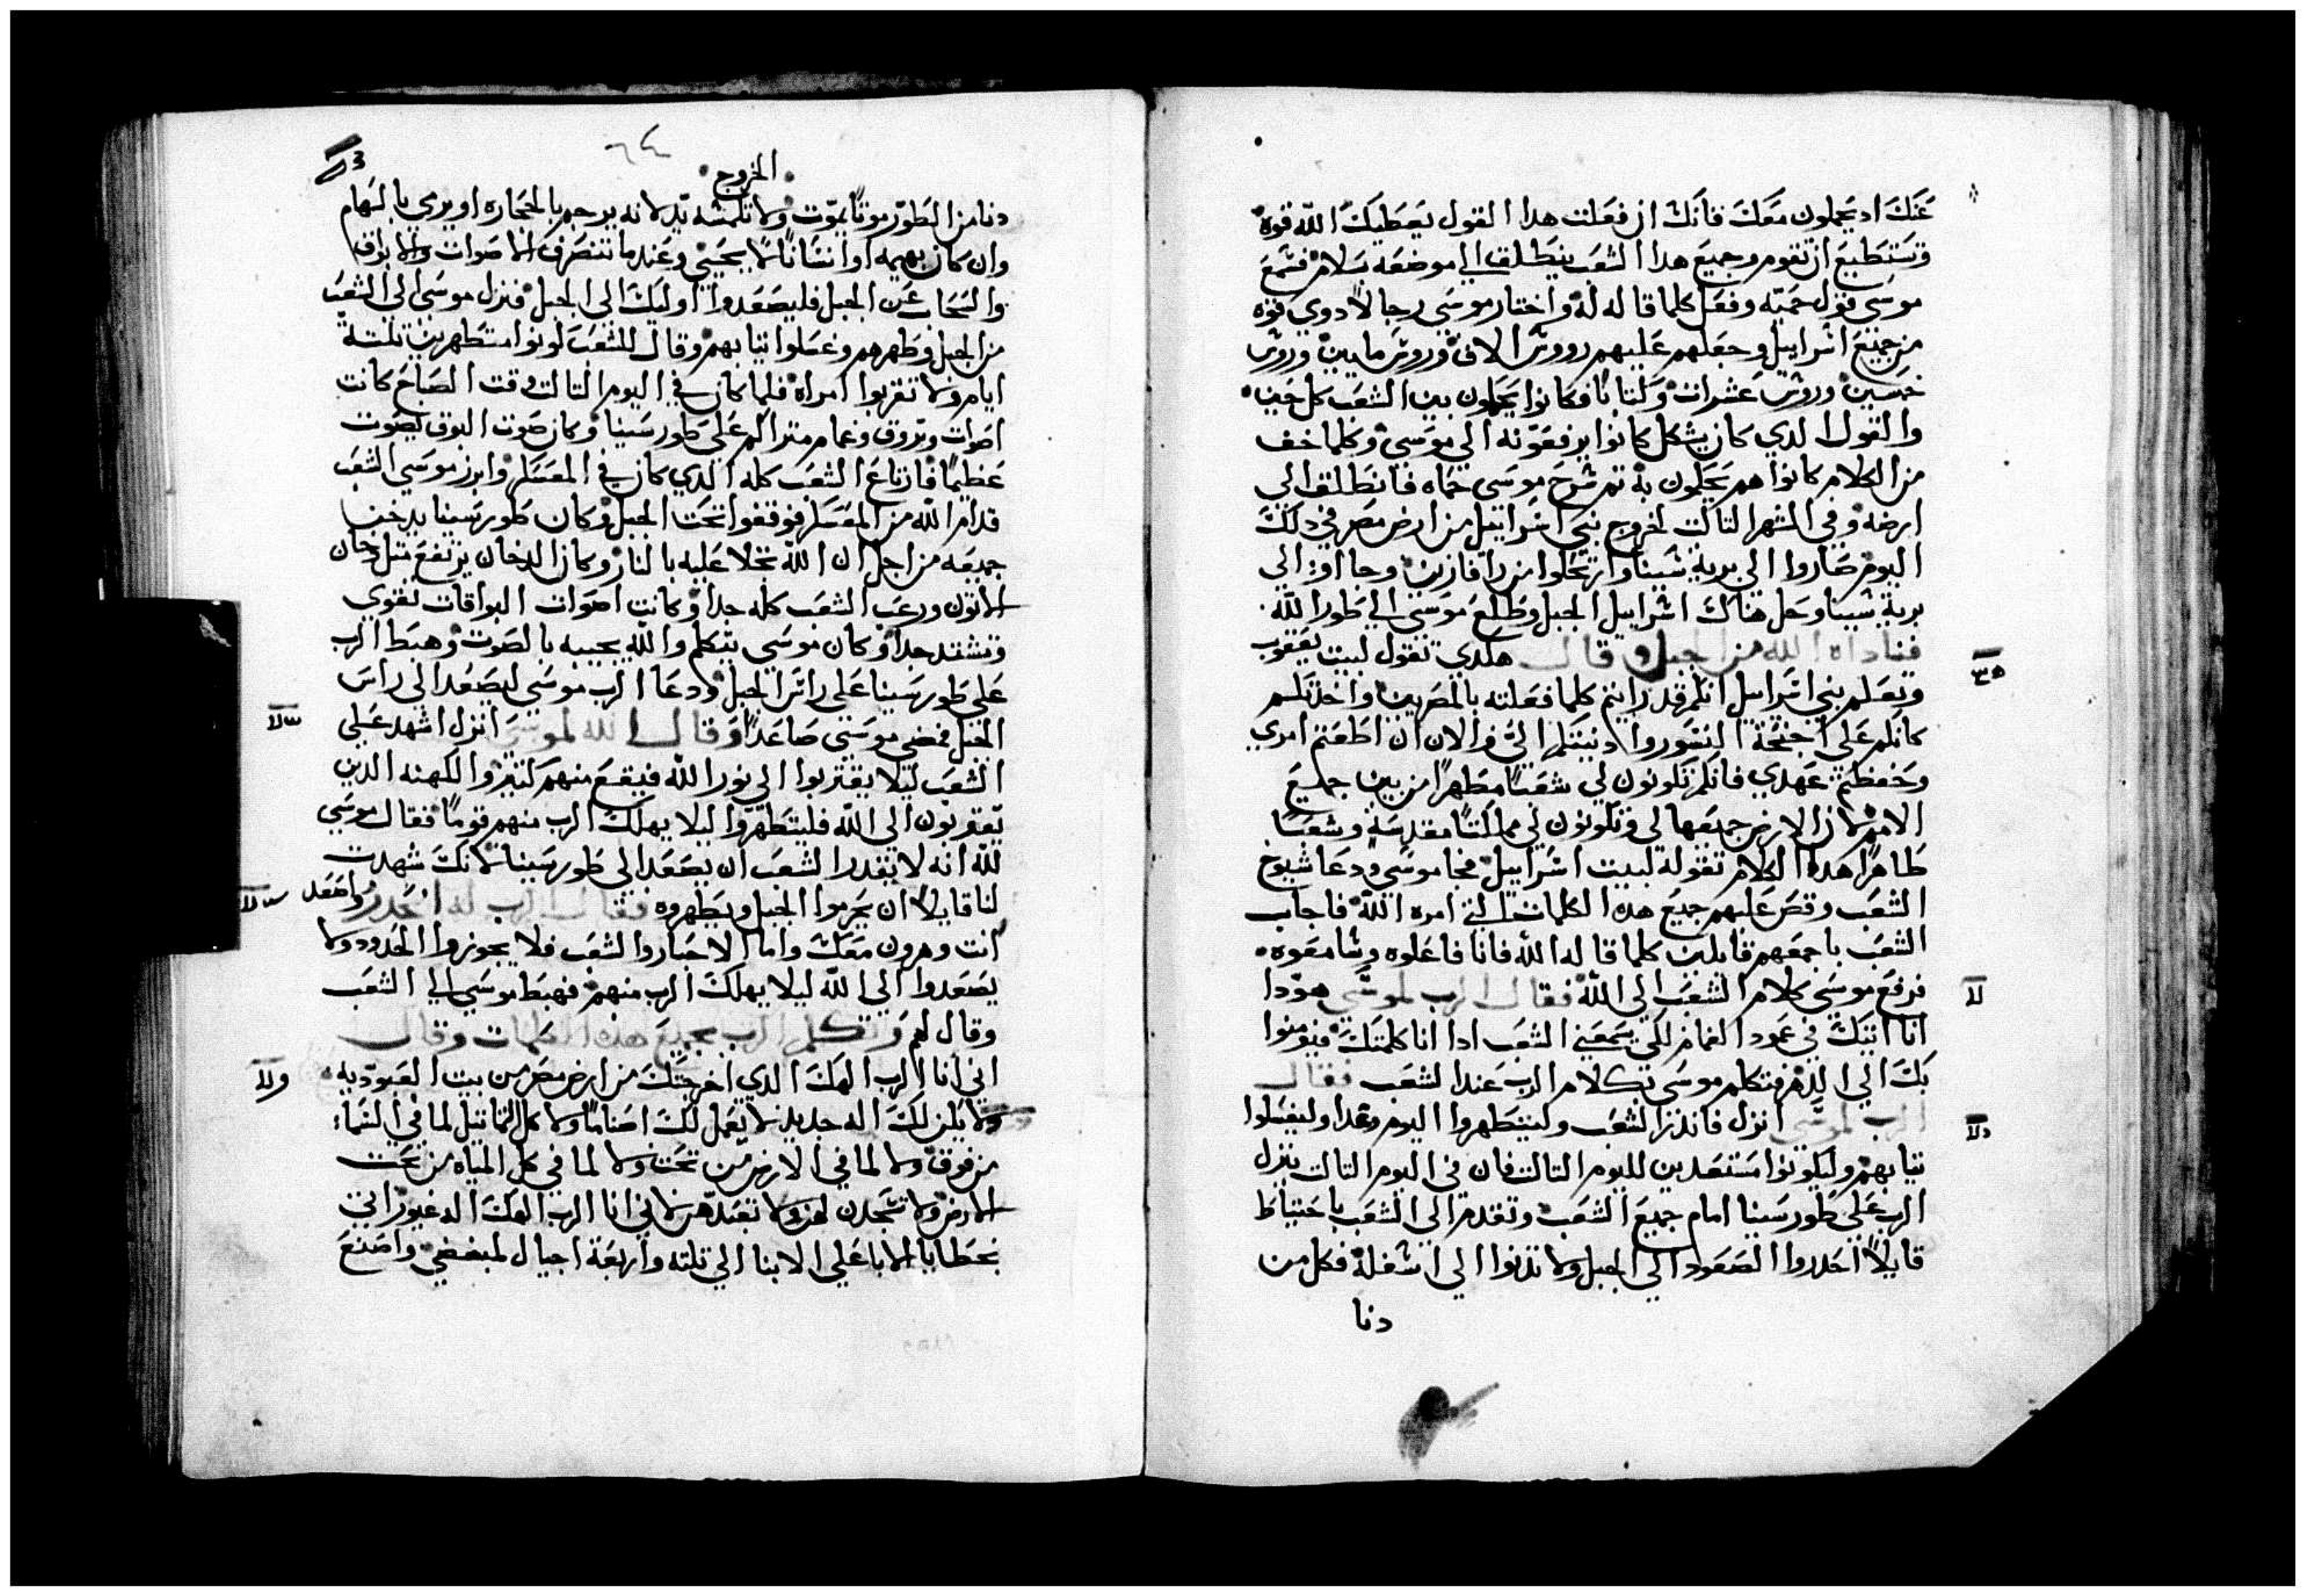 عنك اد يحملون معك فانك ان فعلت هدا القول يعطيك الله قوه
وتستطيع ان تقوم وجميع هدا الشعب ينطلق الي موضعه بسلام فسمع
موسي قول حميه وفعل كلما قاله له واختار موسي رجالاً دوي قوه
من جميع اسراييل وجعلهم عليهم رووس الاف وروس مايين وروس
خمسين وروس عشرات وكتابا فكانوا يحكمون بين الشعب كل حين
والقول الدي كان يشكل كانوا يرفعونه الي موسي وكلما خف
من الكلام كانوا هم يحكمون به تم شرح موسي حماه فانطلق الي
ارضه وفي الشهر التالت لخروج بني اسراييل من ارض مصر في دلك
اليوم صاروا الي برية سينا وارتحلوا من رافازين وجاا وا الي
برية سينا وحل هناك اسراييل الجبل وطلع موسي الي طور الله
فناداه الله من الجبل وقال هكدي تقول لبيت يعقوب
وتعلم بني اسراييل انكم قد رايتم كلما فعلته بالمصريين واخدتكم
كانكم علي اجنحة النسور وادنيتكم الي والان ان اطعتم امري
وحفظتم عهدي فانكم تكونون لي شعباً مطهراً من بين جميع
الامم لان الارض جميعها لي وتكونون لي مملكتاً مقدسة وشعباً
طاهراً هده الكلام تقوله لبيت اسراييل فجا موسي ودعا شيوخ
الشعب وقص عليهم جميع هده الكلمات التي امره الله فاجاب
الشعب باجمعهم قايلين كلما قاله الله فانا فاعلوه وسامعوه
فرفع موسي كلام الشعب الي الله فقال الرب لموسي هودا
انا اتيك في عمود الغمام لكي يسمعني الشعب ادا انا كلمتك فيومنوا
بك الي الدهر فتكلم موسي بكلام الرب عند الشعب فقال
الرب لموسي انزل فاندر الشعب وليتطهروا اليوم وغدا وليغسلوا
تيابهم وليكونوا مستعدين لليوم التالت فان في اليوم التالت ينزل
الرب علي طور سينا امام جميع الشعب وتقدم الي الشعب باحتياط
قايلاً احدروا الصعود الي الجبل ولا تدنوا الي اسفله فكل من
دنا
الخروج
٦٤
دنا من الطور موتاً يموت ولا تلمسه يد لانه يرجم بالحجاره او يرمي بالسهام
وان كان بهيمه او انساناً لا يحيي وعندما تنصرف الاصوات والابواق
والسحاب عن الجبل فليصعدوا اوليك الي الجبل فنزل موسي الي الشعب
من الجبل وطهرهم وغسلوا تيابهم وقال للشعب كونوا متطهرين تلتة
ايام ولا تقربوا امراه فلما كان في اليوم التالت وقت الصباح كانت
اصوات وبروق وغمام متراكم علي طور سينا وكان صوت البوق يصوت
عظيماً فارتاع الشعب كله الدي كان في المعسكر وابرز موسي الشعب
قدام الله من المعسكر فوقفوا تحت الجبل وكان طور سينا يدخن
جميعه من اجل ان الله تجلا عليه بالنار وكان الدخان يرتفع متل دخان
الاتون ورعب الشعب كله جداً وكانت اصوات البواقات تقوي
وتشتد جداً وكان موسي يتكلم والله يجيبه بالصوت وهبط الرب
علي طور سينا علي راس الجبل ودعا الرب موسي ليصعد الي راس
الجبل فمضي موسي صاعداً وقال الله لموسي انزل اشهد علي
الشعب ليلا يقتربوا الي نور الله فيقع منهم كتير والكهنه الدين
يقتربون الي الله فليتطهروا ليلا يهلك الرب منهم قوماً فقال موسي
لله انه لا يقدر الشعب ان يصعد الي طور سينا لانك شهدت
لنا قايلاً ان يحرموا الجبل ويطهروه فقال الرب له انحدر واصعد
انت وهرون معك واما الاحبار والشعب فلا يجوزوا الحدود ولا
يصعدوا الي الله ليلا يهلك الرب منهم فهبط موسي الي الشعب
وقال لهم وتكلم الرب بجميع هده الكلمات وقال
اني انا الرب الهك الدي اخرجتك من ارض مصر من بيت العبوديه
ولا يكن لك اله جديد لا تعمل لك اصناماً ولا كل التماتيل لما في السما
من فوق ولا لما في الارض من تحت ولا لما في كل المياه من تحت
الارض ولا تسجدن لهن ولا تعبدهن لاني انا الرب الهك اله غيور اتي
بخطايا الابا علي الابنا الي تلته واربعة اجيال لمبغضي واصنع